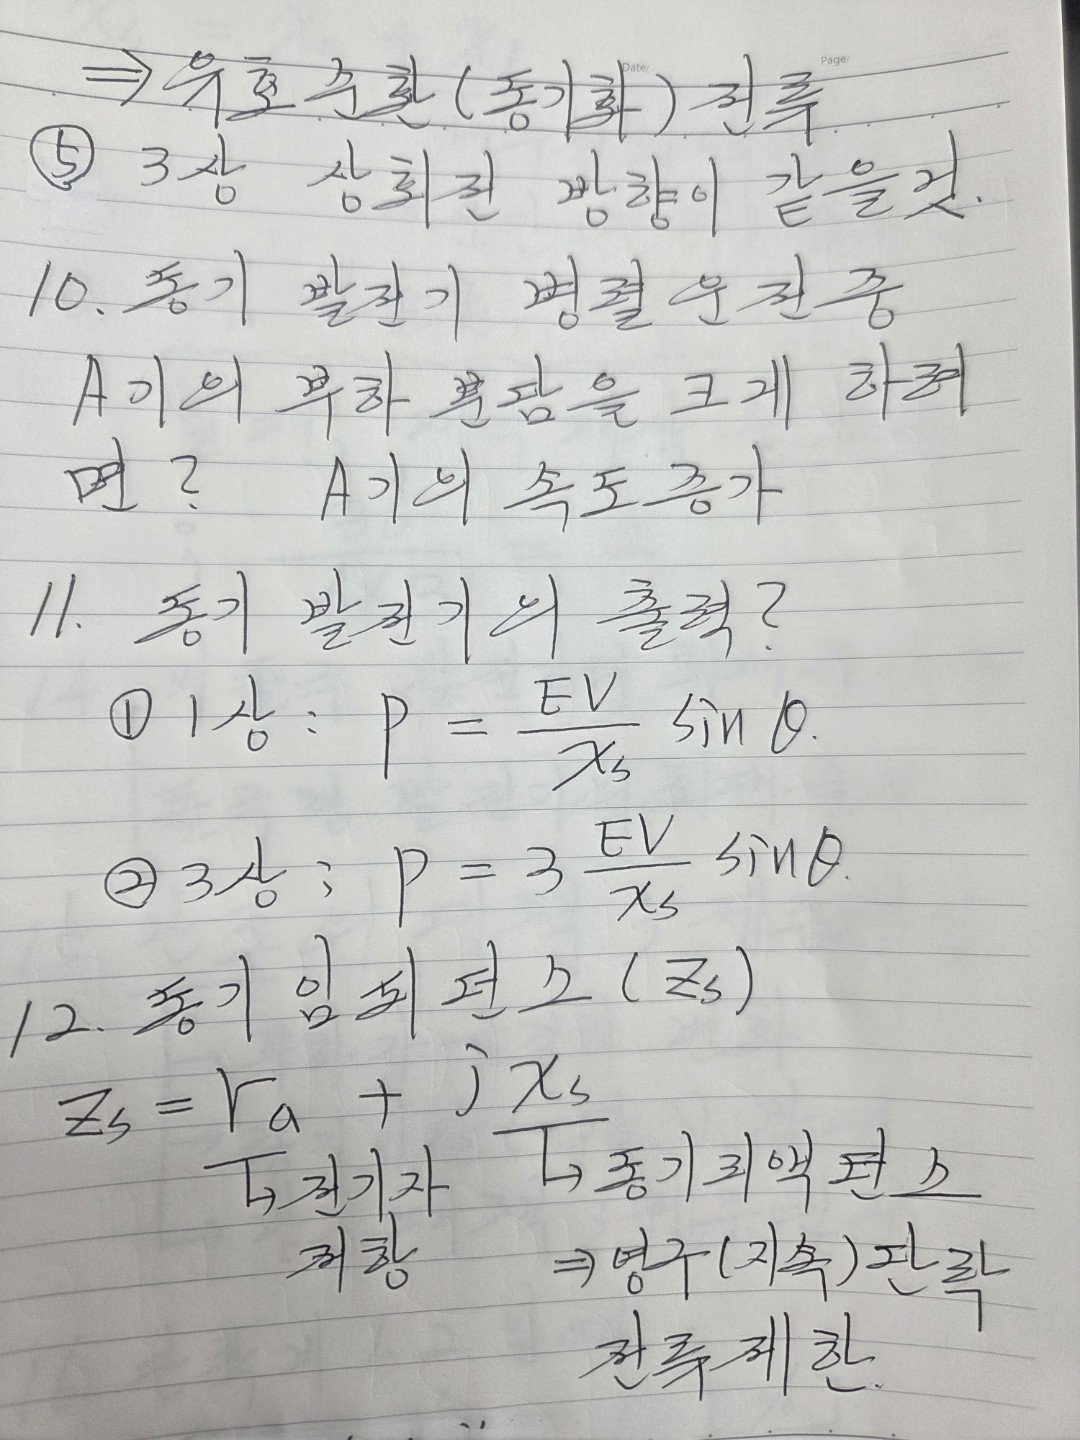 Date/
Page/
⇒ 유효순환(동기화) 전류
⑤ 3상 상회전 방향이 같을것.
10. 동기 발전기 병렬 운전 중
A기의 부하 분담을 크게 하려
면? A기의 속도증가
11. 동기 발전기의 출력?
① 1상 : P = EV/xs sin θ.
② 3상 ; P = 3 EV/xs sin θ.
12. 동기 임피던스 (Zs)
Zs = ra + j xs
↳ 전기자 ↳ 동기리액턴스
저항 ⇒ 영구(지속)단락
전류제한.